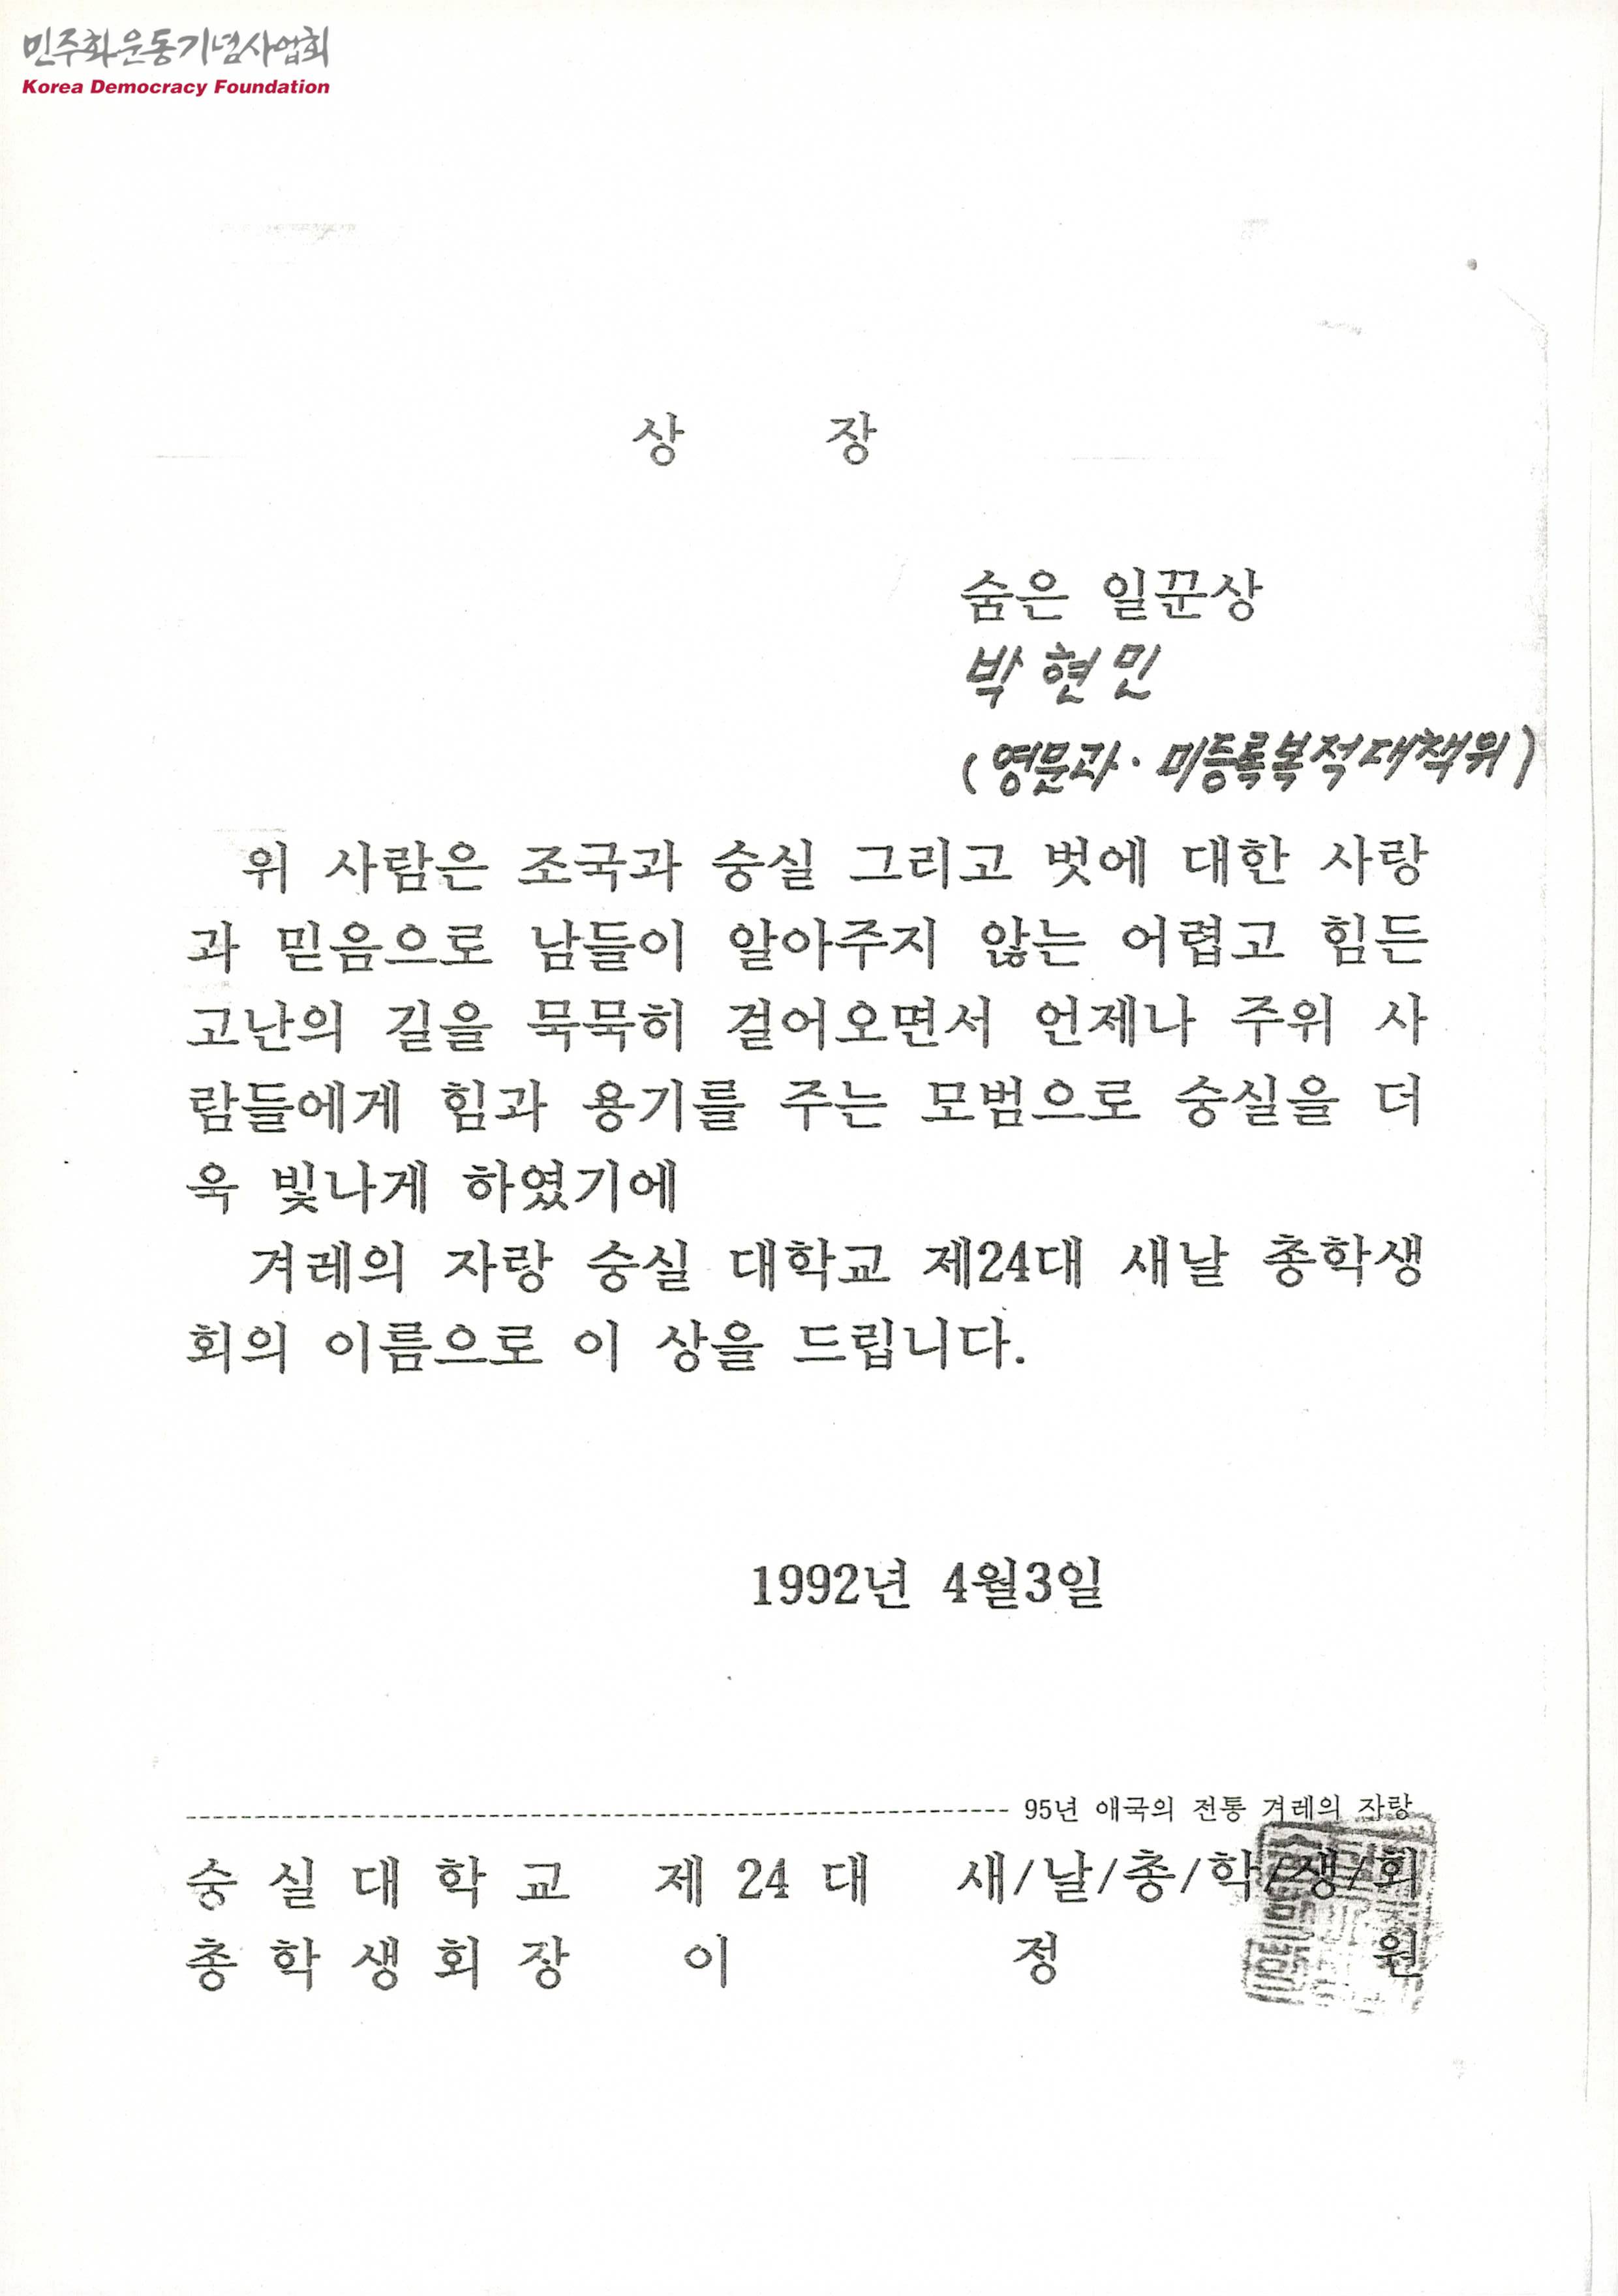 민주화운동기념사업회
Korea Democracy Foundation
상 장
숨은 일꾼상
박현민
(영문과·미등록복적대책위)
위 사람은 조국과 숭실 그리고 벗에 대한 사랑
과 믿음으로 남들이 알아주지 않는 어렵고 힘든
고난의 길을 묵묵히 걸어오면서 언제나 주위 사
람들에게 힘과 용기를 주는 모범으로 숭실을 더
욱 빛나게 하였기에
겨레의 자랑 숭실 대학교 제24대 새날 총학생
회의 이름으로 이 상을 드립니다.
1992년 4월3일
95년 애국의 전통 겨레의 자랑
숭 실 대 학 교 제 24 대 새/날/총/학/생/회
총 학 생 회 장 이 정 원